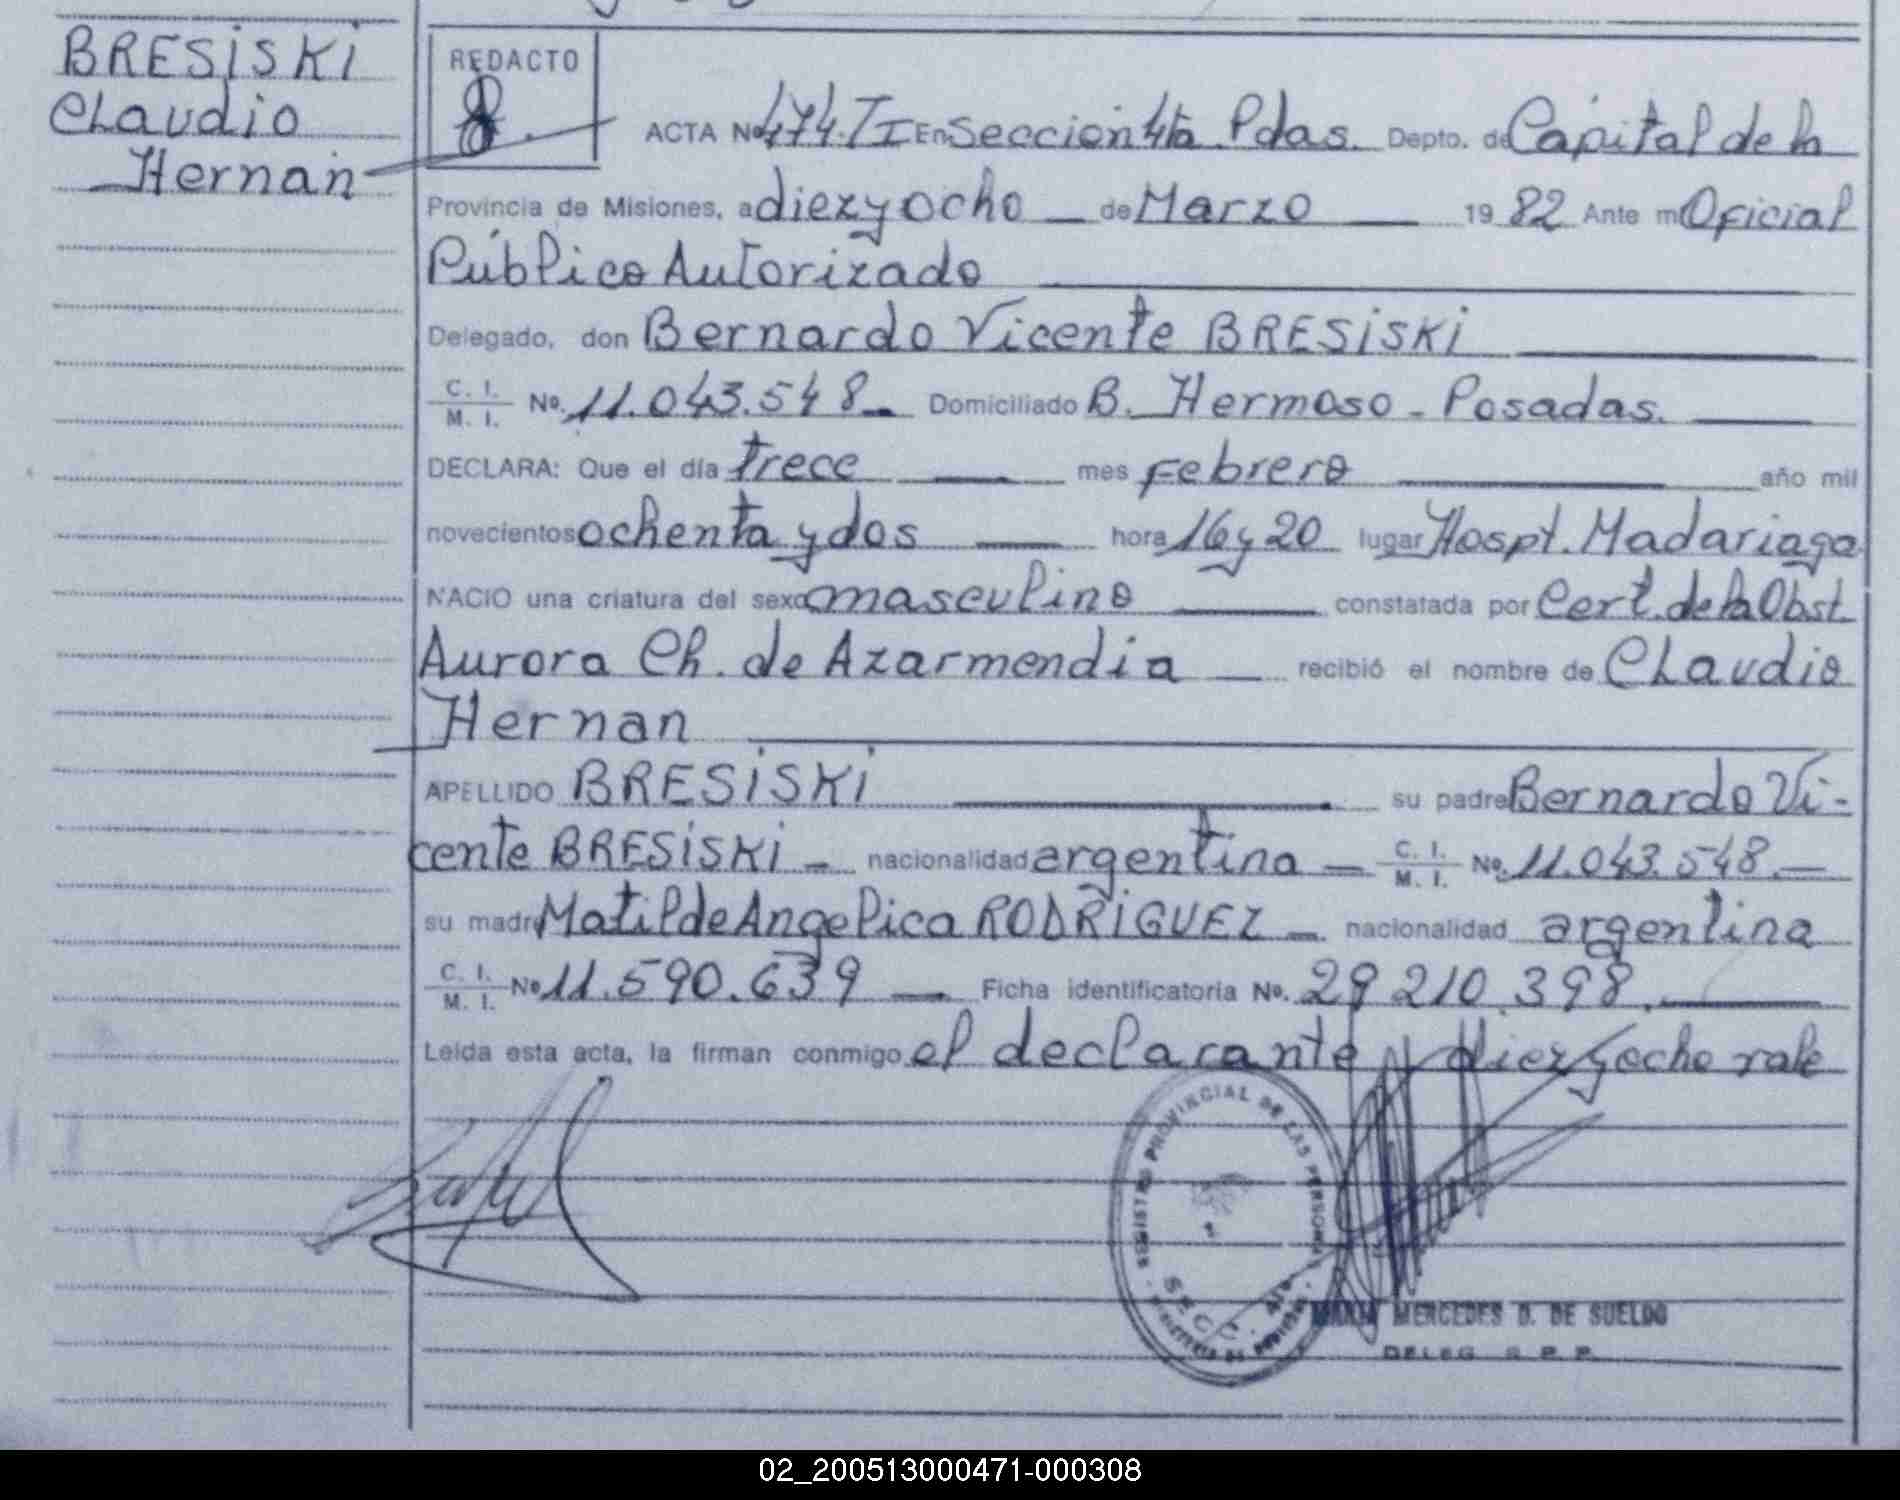 BRESISKI
Claudio
Hernan
REDACTO
ACTA No 474. TI En Seccion 4ta. Pdas. Depto. de Capital de la
Provincia de Misiones, a diez y ocho de Marzo 1982 Ante mi Oficial
Público Autorizado
Delegado, don Bernardo Vicente BRESISKI
C. I. M. I. No. 11.043.548 Domiciliado B. Hermoso - Posadas.
DECLARA: Que el día trece mes Febrero año mil
novecientos ochenta y dos hora 16 y 20 lugar Hospt. Madariaga
NACIO una criatura del sexo masculino constatada por Cert. de la Obst.
Aurora Ch. de Azarmendia recibió el nombre de Claudio
Hernan
APELLIDO BRESISKI su padre Bernardo Vi-
cente BRESISKI - nacionalidad argentina - C. I. M. I. No. 11.043.548.-
su madre Matilde Angelica RODRIGUEZ - nacionalidad argentina
C. I. M. I. No 11.590.639 Ficha identificatoria No. 29 210.398.
Leida esta acta, la firman conmigo el declarante diez y ocho vale
REGISTRO PROVINCIAL DE LAS PERSONAS
SECC. 4ta
MARIA MERCEDES D. DE SUELDO
DELEG. R. P. P.
02_200513000471-000308